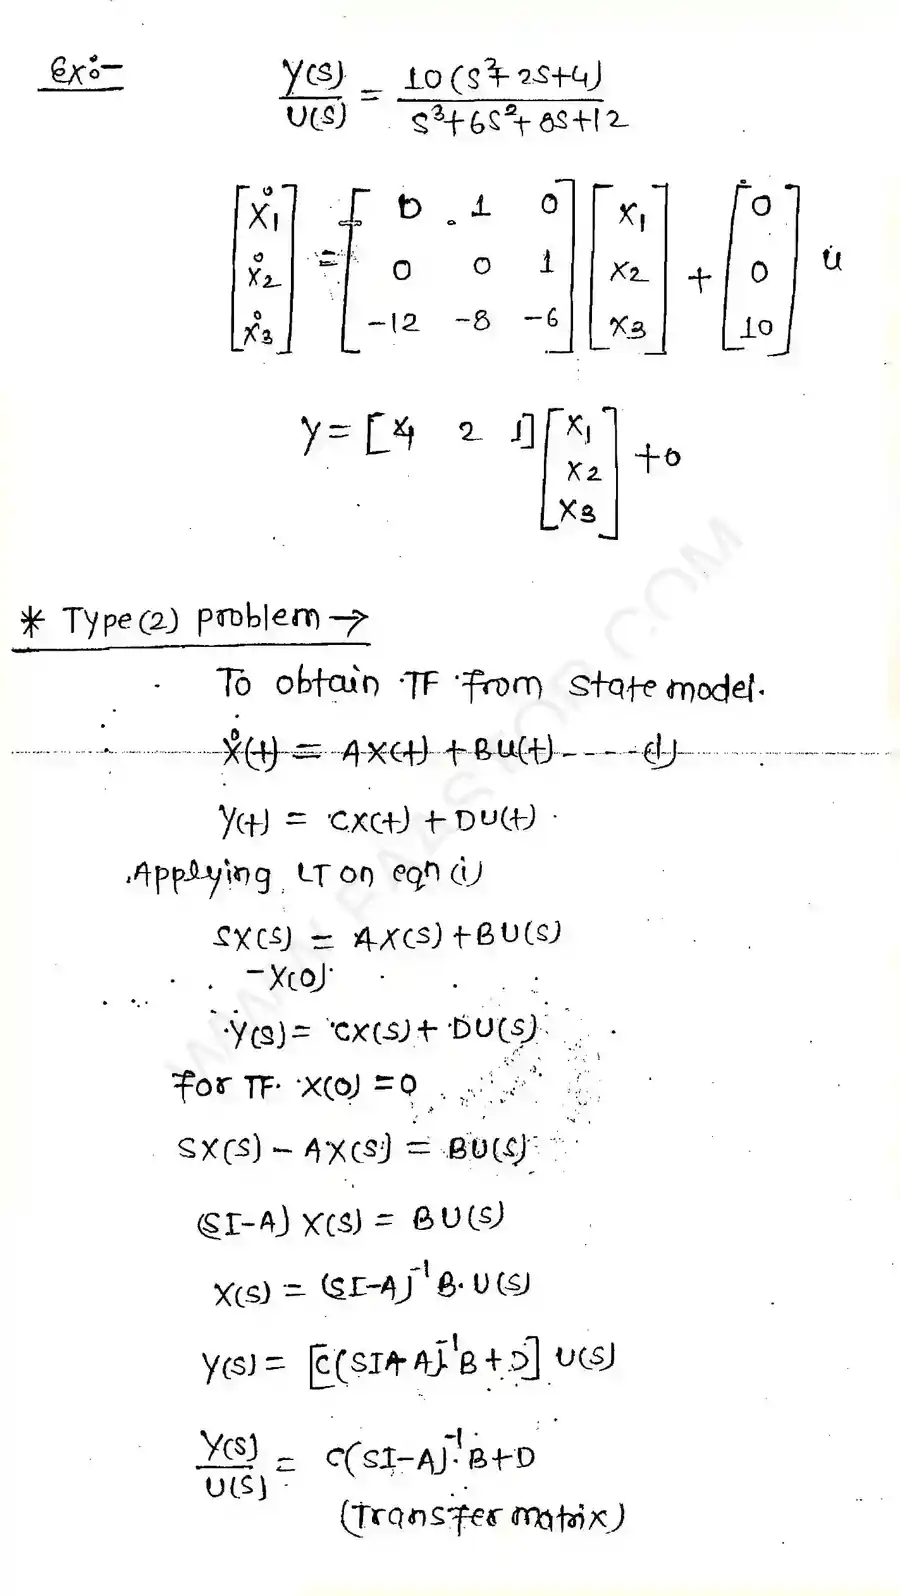 Ex:-
Y(S)/U(S) = 10(S²+2S+4)/S³+6S²+8S+12
[Ẋ1 Ẋ2 Ẋ3] = [0 1 0; 0 0 1; -12 -8 -6] [X1 X2 X3] + [0 0 10] u
Y = [4 2 1] [X1 X2 X3] + 0
* Type(2) problem →
To obtain TF from state model.
Ẋ(t) = AX(t) + BU(t) - - - - (i)
Y(t) = CX(t) + DU(t)
Applying LT on eqn (i)
SX(S) = AX(S) + BU(S)
-X(0)
Y(S) = CX(S) + DU(S)
for TF X(0) = 0
SX(S) - AX(S) = BU(S)
(SI-A) X(S) = BU(S)
X(S) = (SI-A)⁻¹ B. U(S)
Y(S) = [C(SI-A)⁻¹B + D] U(S)
Y(S)/U(S) = C(SI-A)⁻¹.B+D
(Transfer matrix)